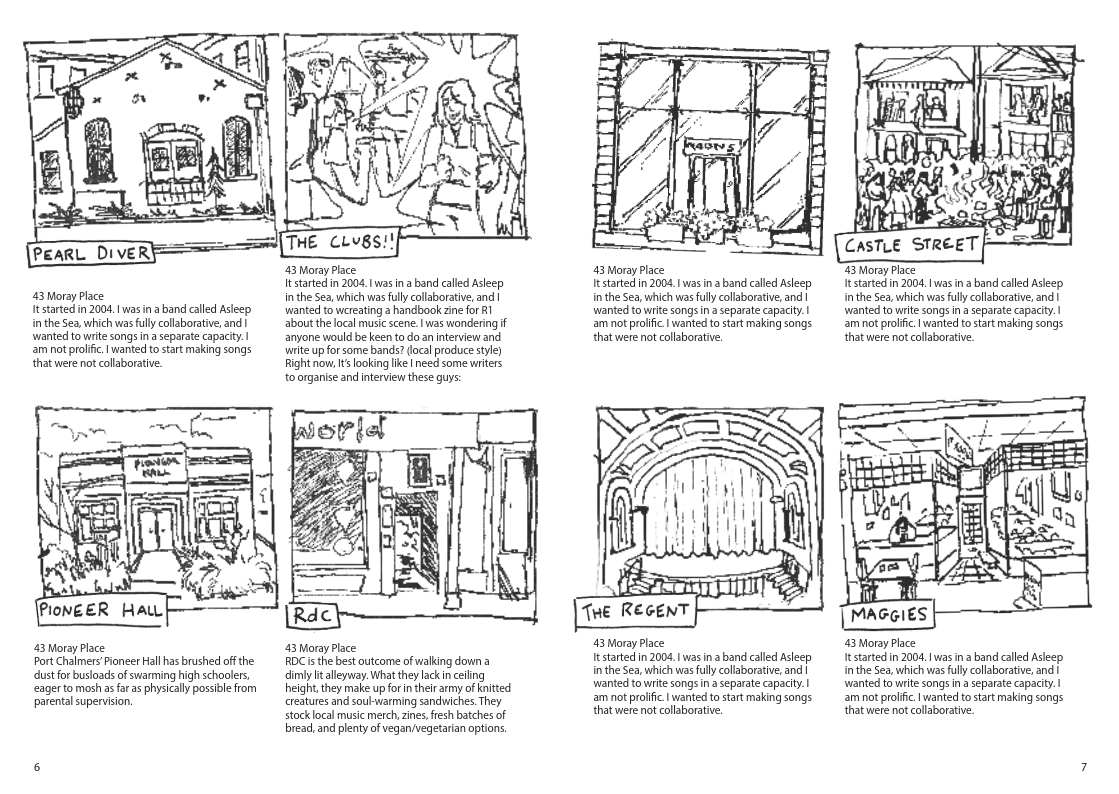 PEARL DIVER
43 Moray Place
It started in 2004. I was in a band called Asleep
in the Sea, which was fully collaborative, and I
wanted to write songs in a separate capacity. I
am not prolific. I wanted to start making songs
that were not collaborative.
THE CLUBS!!
43 Moray Place
It started in 2004. I was in a band called Asleep
in the Sea, which was fully collaborative, and I
wanted to wcreating a handbook zine for R1
about the local music scene. I was wondering if
anyone would be keen to do an interview and
write up for some bands? (local produce style)
Right now, It's looking like I need some writers
to organise and interview these guys:
MOONS
43 Moray Place
It started in 2004. I was in a band called Asleep
in the Sea, which was fully collaborative, and I
wanted to write songs in a separate capacity. I
am not prolific. I wanted to start making songs
that were not collaborative.
CASTLE STREET
43 Moray Place
It started in 2004. I was in a band called Asleep
in the Sea, which was fully collaborative, and I
wanted to write songs in a separate capacity. I
am not prolific. I wanted to start making songs
that were not collaborative.
PIONEER
HALL
PIONEER HALL
43 Moray Place
Port Chalmers' Pioneer Hall has brushed off the
dust for busloads of swarming high schoolers,
eager to mosh as far as physically possible from
parental supervision.
world
RdC
43 Moray Place
RDC is the best outcome of walking down a
dimly lit alleyway. What they lack in ceiling
height, they make up for in their army of knitted
creatures and soul-warming sandwiches. They
stock local music merch, zines, fresh batches of
bread, and plenty of vegan/vegetarian options.
THE REGENT
43 Moray Place
It started in 2004. I was in a band called Asleep
in the Sea, which was fully collaborative, and I
wanted to write songs in a separate capacity. I
am not prolific. I wanted to start making songs
that were not collaborative.
MAGGIES
43 Moray Place
It started in 2004. I was in a band called Asleep
in the Sea, which was fully collaborative, and I
wanted to write songs in a separate capacity. I
am not prolific. I wanted to start making songs
that were not collaborative.
6
7